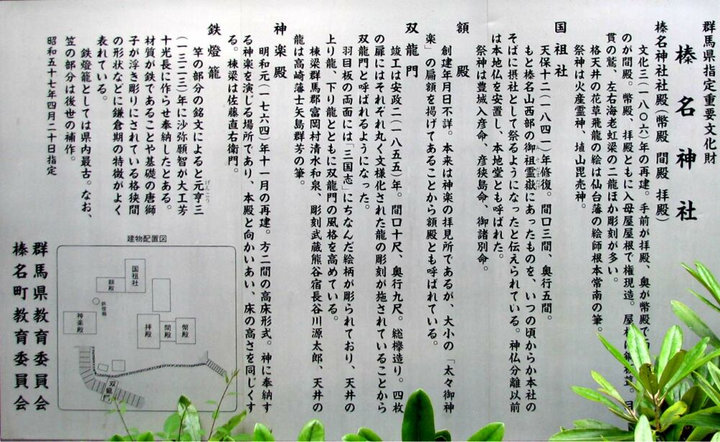 群馬県指定重要文化財
榛名神社
榛名神社社殿(幣殿 間殿 拝殿)
文化三(一八〇六)年の再建。手前が拝殿、奥が幣殿で
のが間殿。幣殿、拝殿ともに入母屋屋根で権現造。屋根は
貫の鷲、左右海老虹梁の二龍ほか彫刻が多い。
格天井の花草飛龍の絵は仙台藩の絵師根本常南の筆。
祭神は火産霊神、埴山毘売神。
国祖社
天保十二(一八四一)年修復。間口三間、奥行五間。
もと榛名山西部の御祖霊嶽にあったものを、いつの頃からか本社の
そばに摂社として祭るようになったと伝えられている。神仏分離以前
は本地仏を安置し、本地堂とも呼ばれた。
祭神は豊城入彦命、彦狭島命、御諸別命。
額殿
創建年月日不詳。本来は神楽の拝見所であるが、大小の「太々御神
楽」の扁額を掲げてあることから額殿とも呼ばれている。
双龍門
竣工は安政二(一八五五)年。間口十尺、奥行九尺。総欅造り。四枚
の扉にはそれぞれ丸く文様化された龍の彫刻が施されていることから
双龍門と呼ばれるようになった。
羽目板の両面には「三国志」にちなんだ絵柄が彫られており、天井の
上り龍、下り龍とともに双龍門の風格を高めている。
棟梁群馬郡富岡村清水和泉、彫刻武蔵熊谷宿長谷川源太郎、天井の
龍は高崎藩士矢島群芳の筆。
神楽殿
明和元(一七六四)年十一月の再建。方二間の高床形式。神に奉納す
る神楽を演じる場所であり、本殿と向かいあい、床の高さを同じくす
る。棟梁は佐藤直右衛門。
鉄燈籠
竿の部分の銘文によると元亨三
(一三二三)年に沙弥願智が大工芳
十光長に作らせ奉納したとある。
材質が鉄であることや基礎の唐獅
子が浮き彫りにされている格狭間
の形状などに鎌倉期の特徴がよく
表れている。
鉄燈籠としては県内最古。なお、
笠の部分は後世の補作。
昭和五十七年四月二十日指定
群馬県教育委員会
榛名町教育委員会
建物配置図
国祖社
額殿
鉄燈籠
神楽殿
拝殿
間殿
幣殿
双龍門